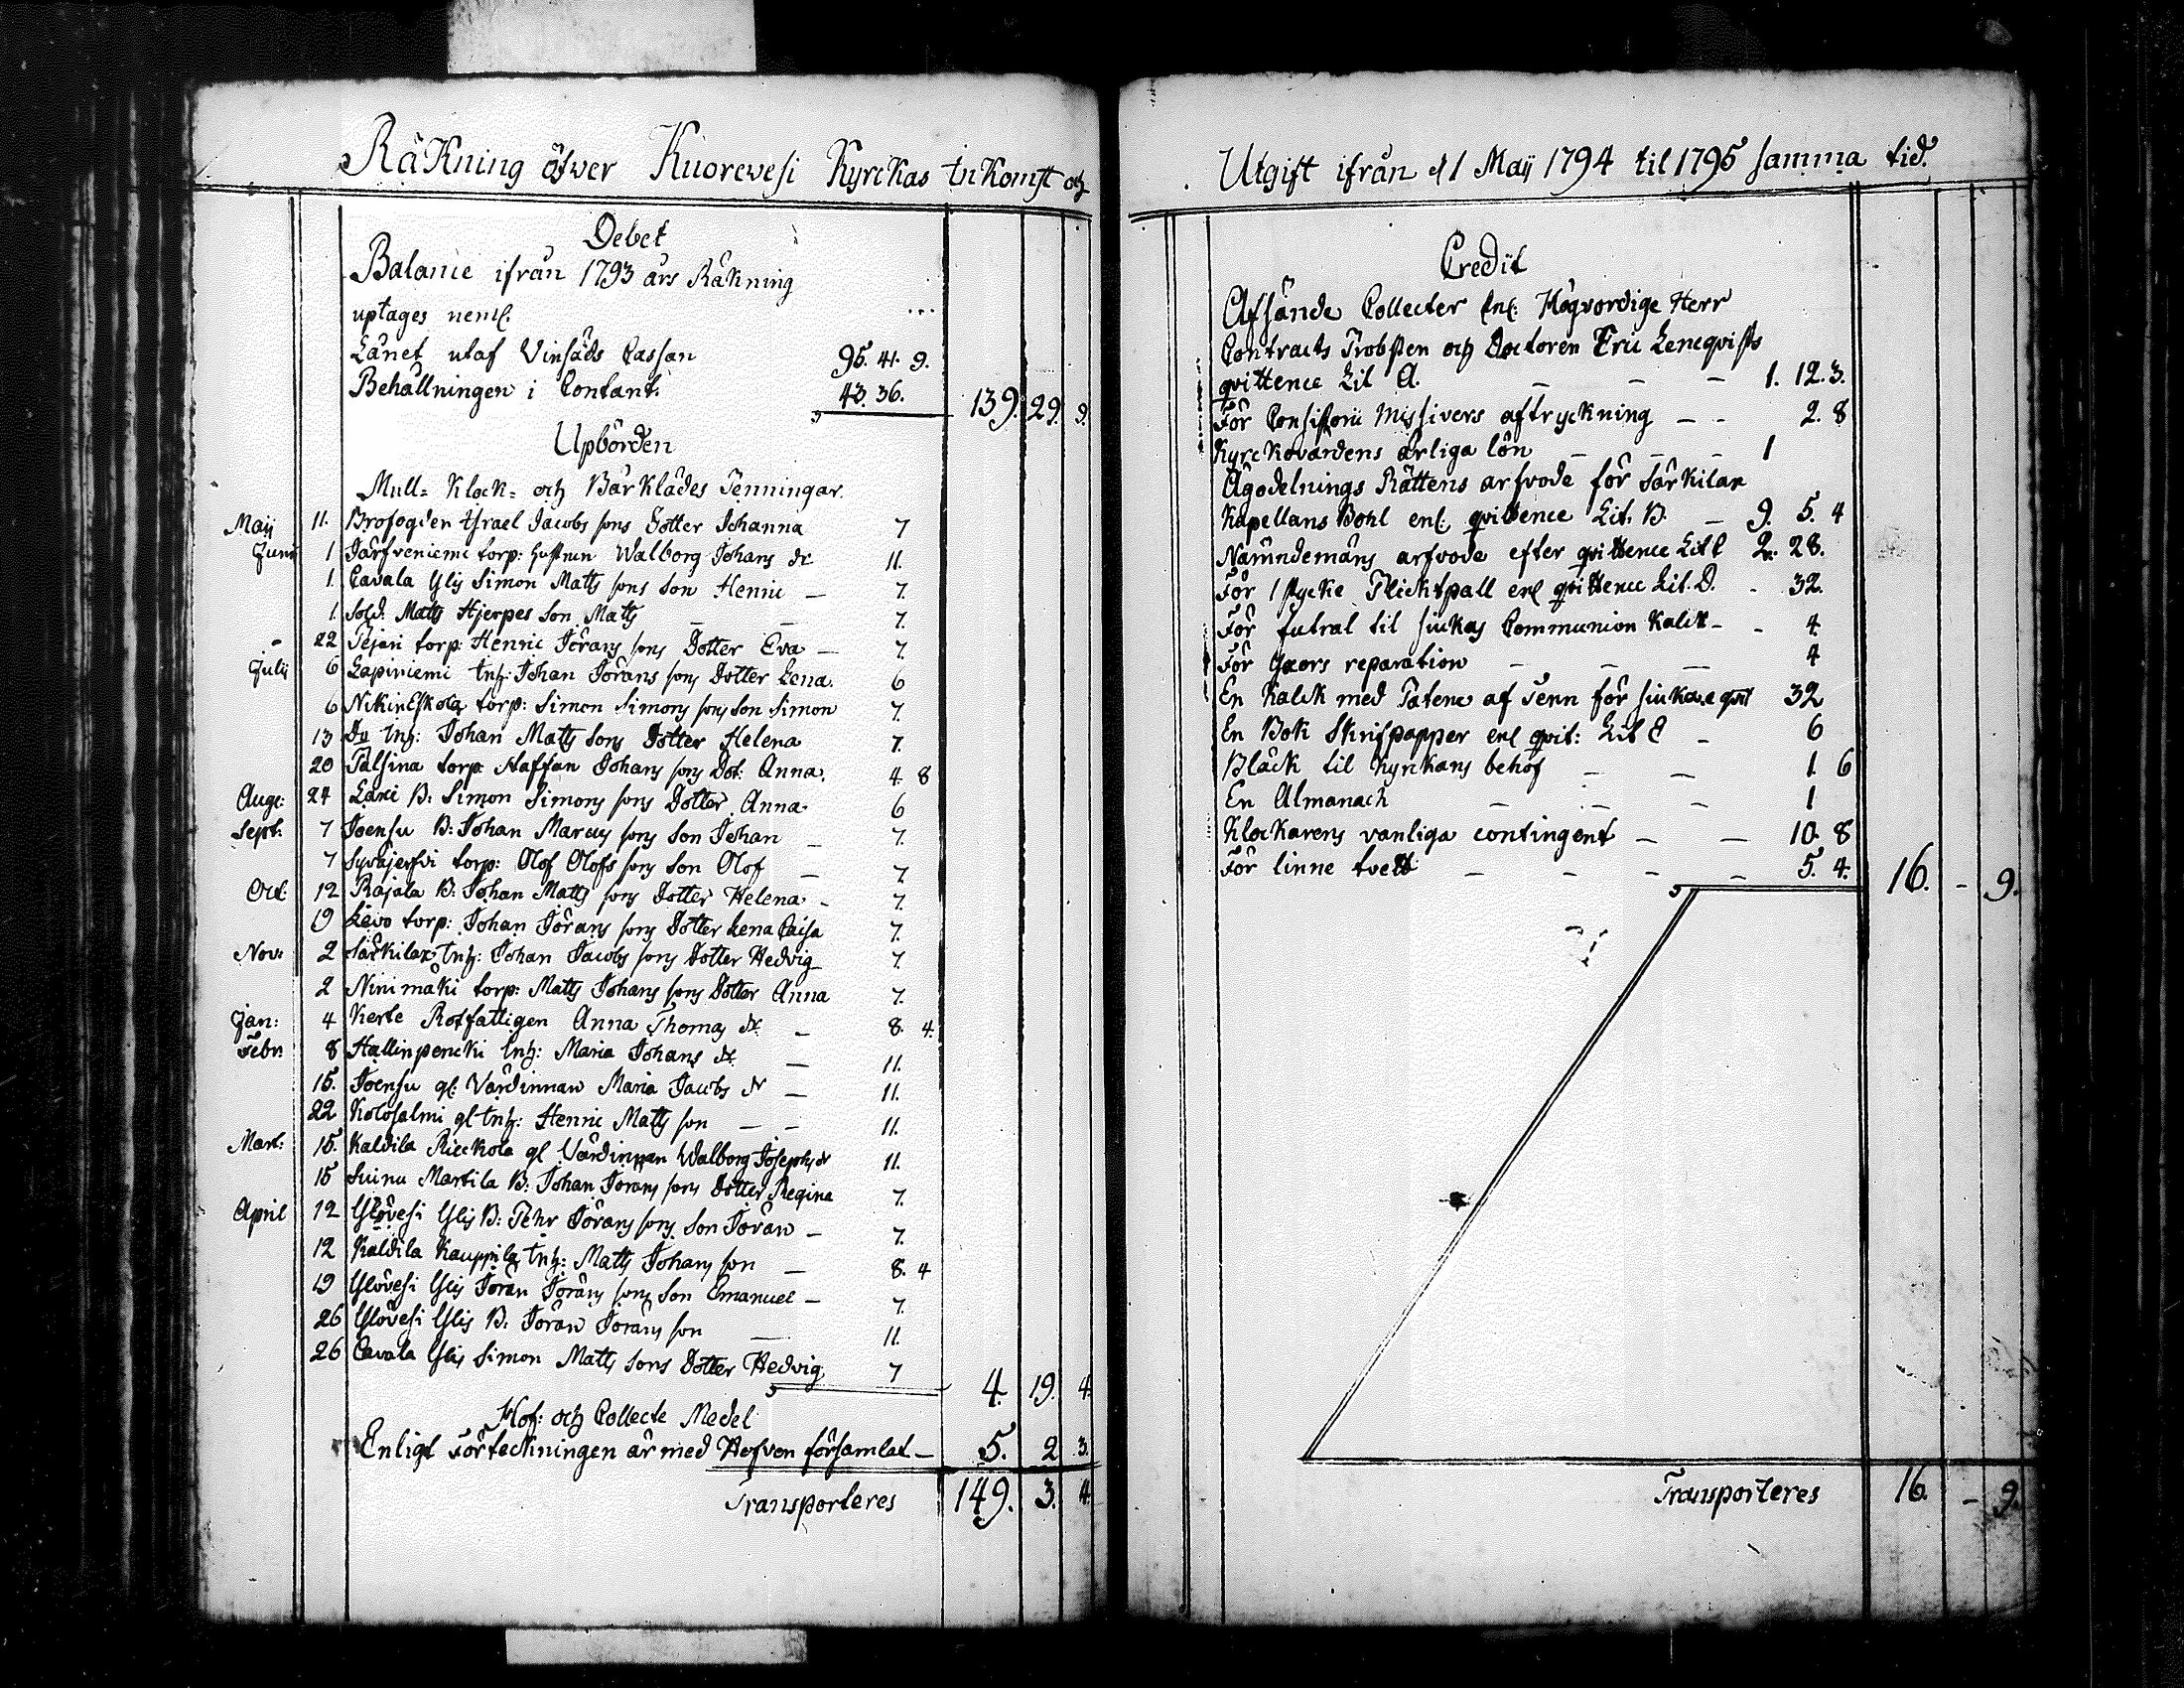 Räkning öfwer Kuorewesi Kyrckas Inkomst och
Debet
Balance ifrån 1793 års Räkning
uptages neml. ...
Lånet utaf Vinsäds Cassan 95. 41. 9.
Behållningen i Contant. 43. 36. 139. 29. 9.
Upbörden
Mull- Klock- och Bårklädes Penningar.
Maij 11. Brofogden Ysrael Jacobs sons Dotter Johanna 7
Junii 1 Järfveniemi torp: hustrun Walborg Johans dr 11.
1. Cavala Ylis Simon Matts sons son Henric — 7.
1. Sold. Matts Hjerpes son Matts — — 7.
22 Pejari torp: Henric Jörans sons Dotter Eva — 7.
Julii 6 Lapiniemi Inh: Johan Jörans sons Dotter Lena. 6
6 NikinEskola torp: Simon Simons sons son Simon 7.
13 Do Inh: Johan Matts sons Dotter Helena 7.
20 Palsina torp Staffan Johans sons Dot: Anna. 4 8
Aug: 24 Lari B: Simon Simons sons Dotter Anna. 6
Sept: 7 Joensu B: Johan Marcus sons son Johan — 7.
7 Syväjerfvi torp: Olof Olofs sons son Olof — 7.
Oct: 12 Rajala B: Johan Matts sons Dotter Helena - 7.
19 Levo torp: Johan Jörans sons Dotter Lena Caisa 7.
Nov: 2 Särkilax Inh: Johan Jacobs sons Dotter Hedvig 7.
2 Ninimäki torp: Matts Johans sons Dotter Anna 7.
Jan: 4 Kerte Rotfattigen Anna Thomas dr — 8. 4.
Febr: 8 Hallinpencki Inh: Maria Johans dr — 11.
15. Joensu gl: Värdinnan Maria Jacobs dr — 11.
22 Kolosalmi gl Inh: Henric Matts son — — 11.
Mart: 15. Kaldila Rieckola gl Värdinnan Walborg Josephs dr 11.
15 Suinu Martila B: Johan Jörans sons Dotter Regina 7.
April 12 Ylövesi Ylis B: Pehr Jörans sons son Jöran — 7.
12 Kaldila Kauppila Inh: Matts Johans son — 8. 4
19 Ylövesi Ylis Jöran Jörans sons son Emanuel — 7.
26 Ylövesi Ylis B: Jöran Jörans son — 11.
26 Cavala Ylis Simon Matts sons Dotter Hedvig 7 4. 19. 4.
Hof: och Collecte Medel
Enligt Förteckningen är med Hofven församlat — 5. 2 3.
Transporteres 149. 3. 4.
Utgift ifrån d 1 Maij 1794 til 1795 samma tid.
Credit
Afsände Collecter enl: Högvordige Herr
Contracts Probsten och Doctoren Eric Lencqvists
qvittence Lit A. — — — 1. 12. 3.
För Consistorii Missivers aftryckning — - 2. 8
Kyrckovärdens årliga lön — — — 1
Ägodelnings Rättens arfvode för Särkilax
Kapellans Bohl enl: qvittence Lit. B. — 9. 5. 4
Nämndemäns arfvode efter qvittence Lit C 2. 28.
För 1 stycke Plicktpall enl qvittence Lit. D. - 32.
För futral til siukas Communion Kalck — - 4.
För — reparation — — — 4
En Kalck med Patene af Tenn för siuka.e qvit 32
En Bok Skrifpapper enl qvit: Lit E — 6
Bläck til Kyrckans behof — — 1. 6
En Almanach — — — 1
Klockarens vanliga contingent — — 10. 8
För linne tvett — — — — 5. 4. 16. - 9.
Transporteres 16. - 9.